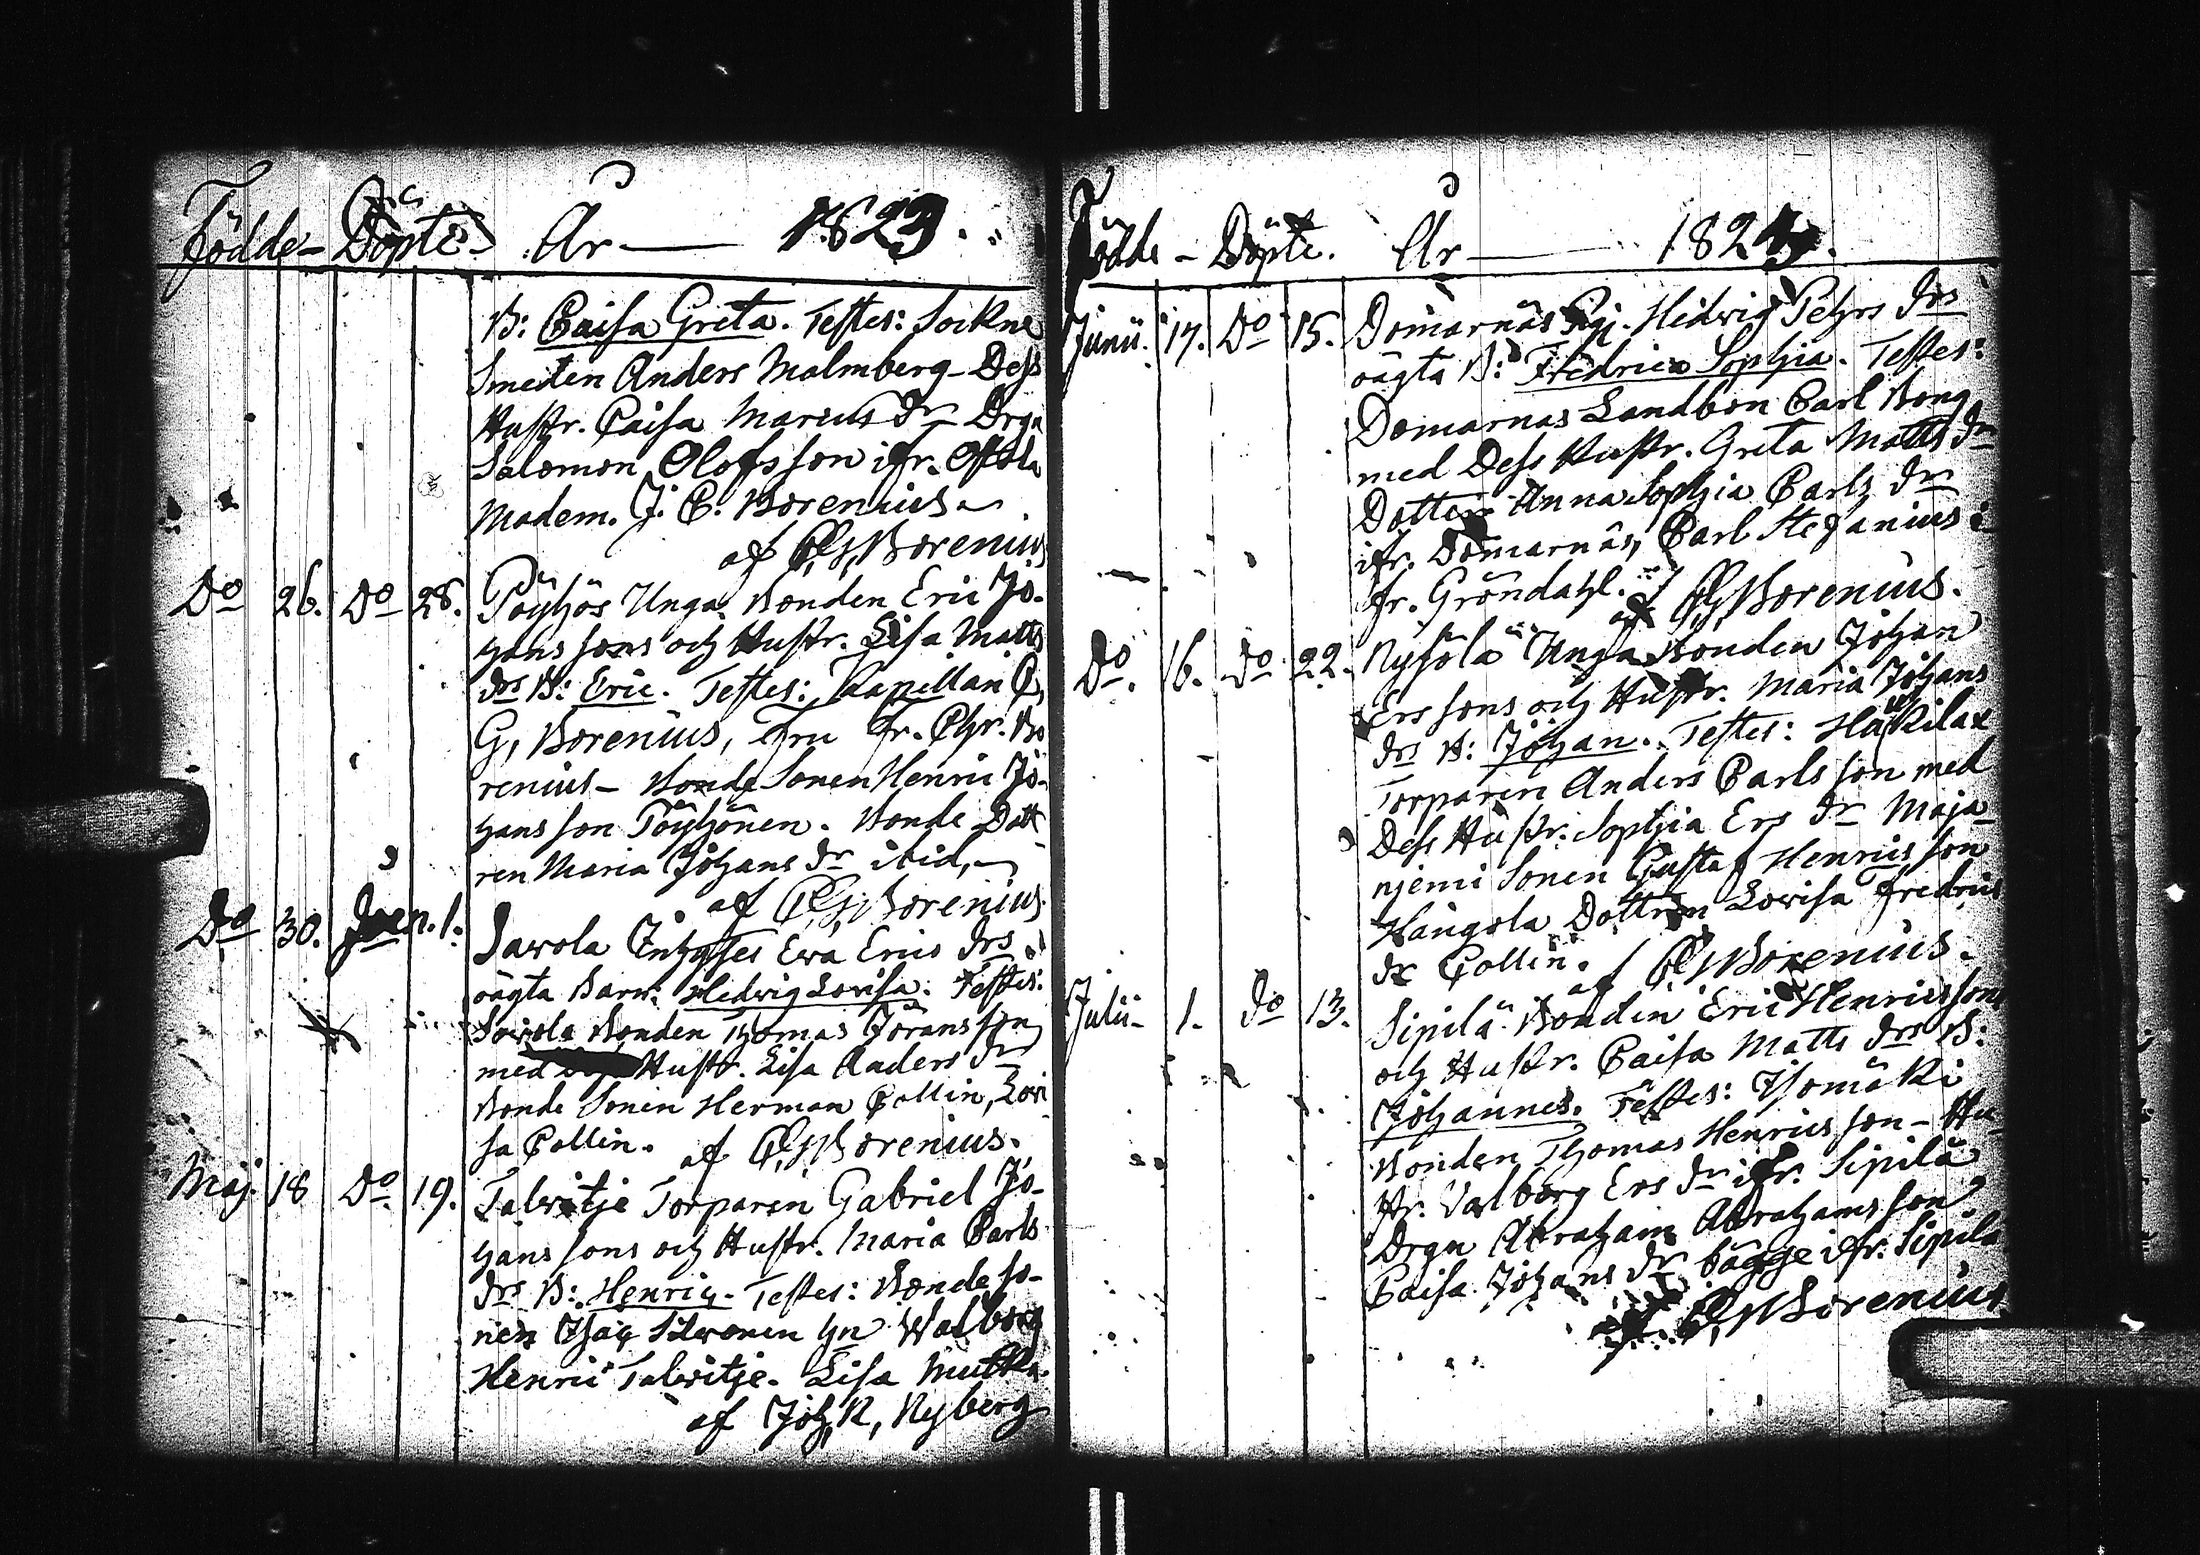 Födde - Döpte - År — 1823.
B: Caisa Greta. Testes: Sockne
Smeden Anders Malmberg - Dess
Hustr. Caisa Marcus dr - Drgn
Salomon Olofsson ifr.
Madem. J. C. Borenius
af C,G,Borenius
Do 26. Do 28. Pöyhös Unga Bonden Eric Jo-
hanssons och Hustr. Lisa Matts
drs B: Eric. Testes: Kapellan C,
G, Borenius, Fru Fr. Chr. Bo
renius - Bonde Sonen Henric Jo-
hansson Pöyhönen. Bonde Dott
ren Maria Johans dr ibid,
af C,G,Borenius
Do 30. 1. Sawola Inhyses Ewa Erics drs
oägta Barn: Hedwig Lovisa. Testes:
Sawola Bonden Thomas Jöransson
med Hustr. Lisa Anders dr
Bonde Sonen Herman Collin, Lovi
sa Collin. af C,G,Borenius.
Maj. 18 Do 19. Talwitje Torparen Gabriel Jo-
hanssons och Hustr. Maria Carls
drs B: Henric. Testes: Bonde so-
nen Isac Walborg
Henric Talwitje. Lisa
af Joh, R, Nyberg
Födde - Döpte. År — 182
Junii. 17. Do 15. Domarnäs Pig. Hedwig Pehrs drs
oägta B: Fredrica Sophia. Testes:
Domarnäs Landbon Carl Bong
med Dess Hustr. Greta Matts dr
Dotter Anna Sophia Carls dr
ifr. Domarnäs, Carl Stefanius i
fr. Gröndahl. af C,G,Borenius.
Do. 16. Do 22. Nysölä Unga Bonden Johan
Erssons och Hustr. Maria Johans
drs B: Johan. Testes: Håkilax
Torparen Anders Carlsson med
Dess Hustr. Sophia Ers dr Maja-
njemi Sonen Gustaf Henricsson
Hångola Dottren Lovisa Fredrics
dr Gollin. af C,G,Borenius.
Julii - 1. do 13. Sipilä Bonden Eric Henricssons
och Hustr. Caisa Matts drs B:
Johannes. Testes: Isomäki
Bonden Thomas Henricsson - Hu-
str. Valborg Ers dr ifr. Sipilä
Drgn Abraham Abrahamsson
Caisa Johans dr bägge ifr. Sipilä
af C,G,Borenius